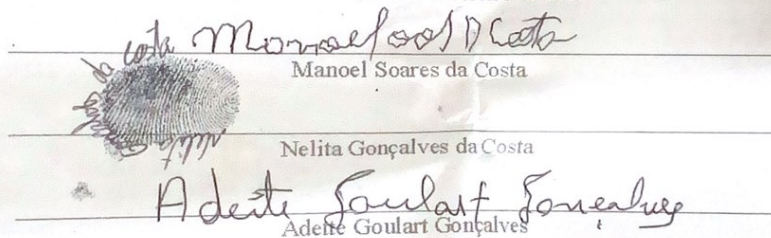 Manoel Soares da Costa
Nelita Gonçalves da Costa
Nelita Gonçalves da Costa
Adeite Goulart Gonçalves
Adeite Goulart Gonçalves